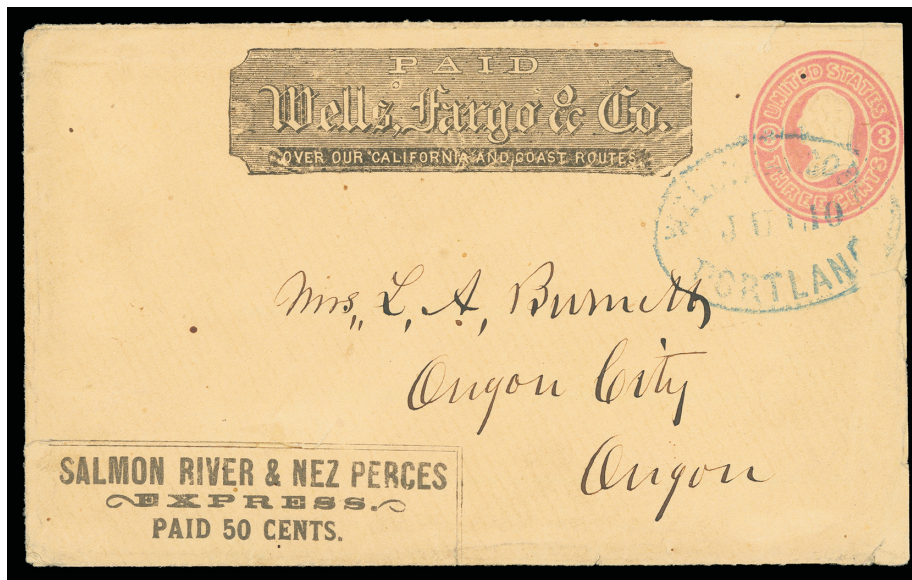 PAID
Wells, Fargo & Co.
OVER OUR CALIFORNIA AND COAST ROUTES.
UNITED STATES
3 3
THREE CENTS
10
PORTLAND
Mrs, L, A, Burnett
Oregon City
Oregon
SALMON RIVER & NEZ PERCES
EXPRESS.
PAID 50 CENTS.